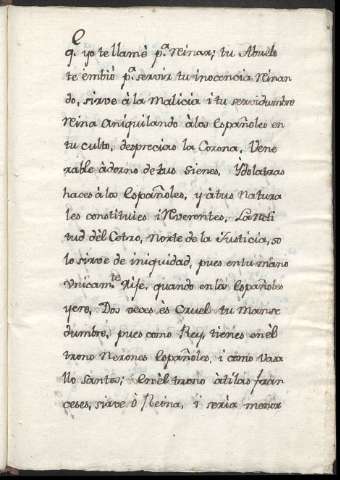 e
q. yo te llamè p.ª Reinar; tu Abuelo
te embiò p.ª servir tu inocencia Reinan
do, sirve à la Malicia i tu servidumbre
Reina Aniquilando àlos Españoles en
tu culto, desprecias la Corona, Vene
rable àdorno de tus Sienes, Ydolatras
haces àlos Españoles, y àtus Natura
les constituies iRreverentes, La Recti
tud dèl Cetro, Norte de la Justicia, so
lo sirve de iniquidad, pues en tu mano
Unicam.te Rije, quando en los Españoles
yere, Dos veces ès Cruel tu Manse
dumbre, pues como Rey, tienes en èl
trono Nerones Españoles, i como Vasa
llo Santos; En èl trono àtilas fran
ceses, sirve ò Reina, i serìa menor